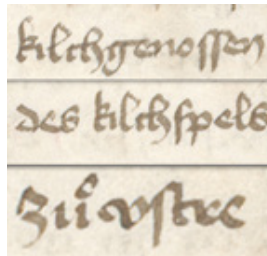 kilchgenossen
des kilchspels
zuͦ vstre